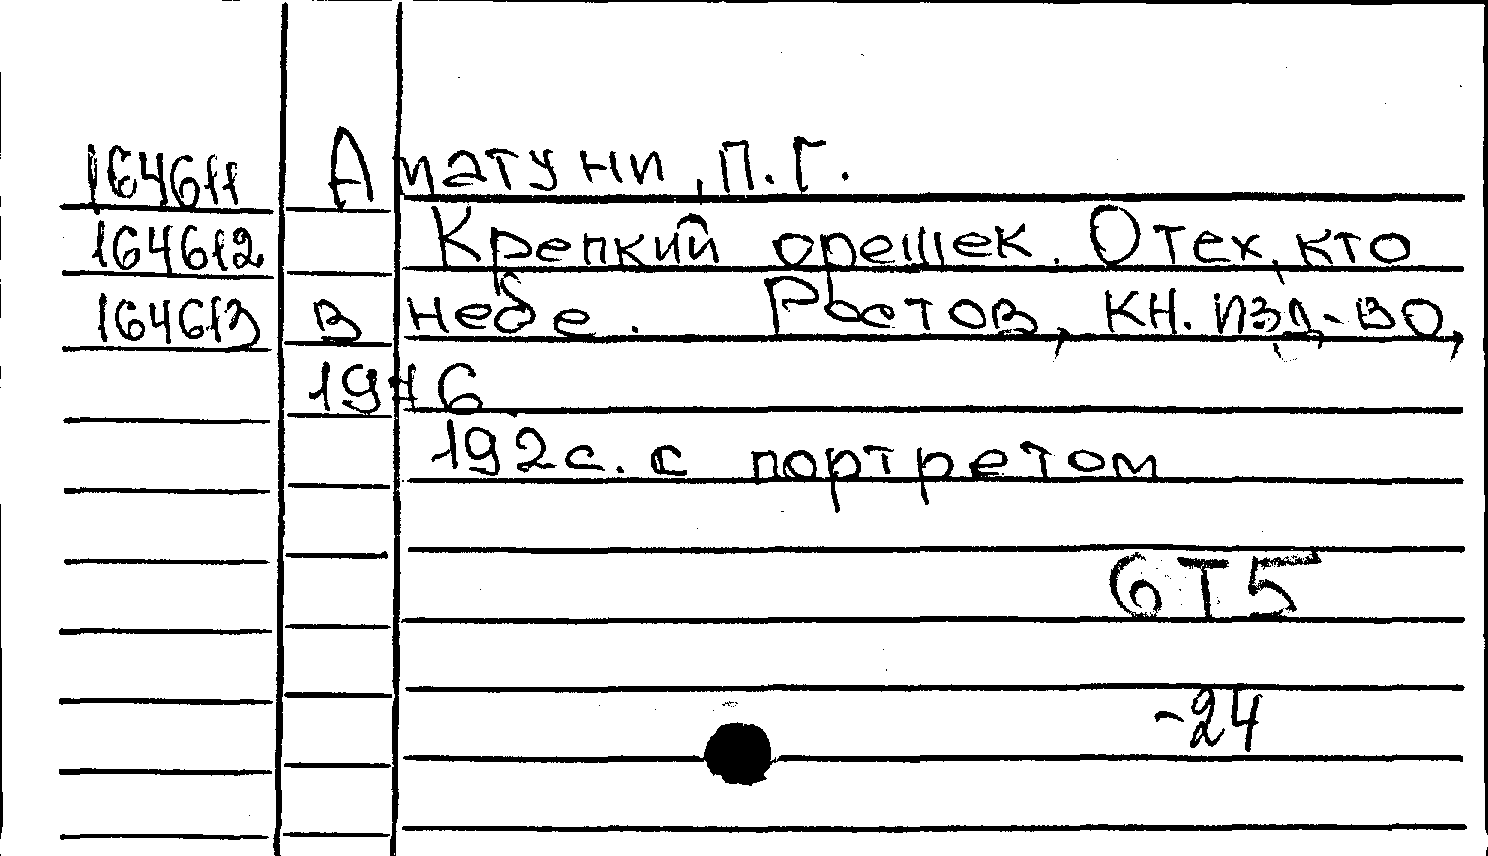 164611 Аматуни, П. Г.
164612 Крепкий орешек. О тех, кто
164613 в небе. Ростов, кн. изд-во,
1976.
192 с. с портретом
6Т5
-24